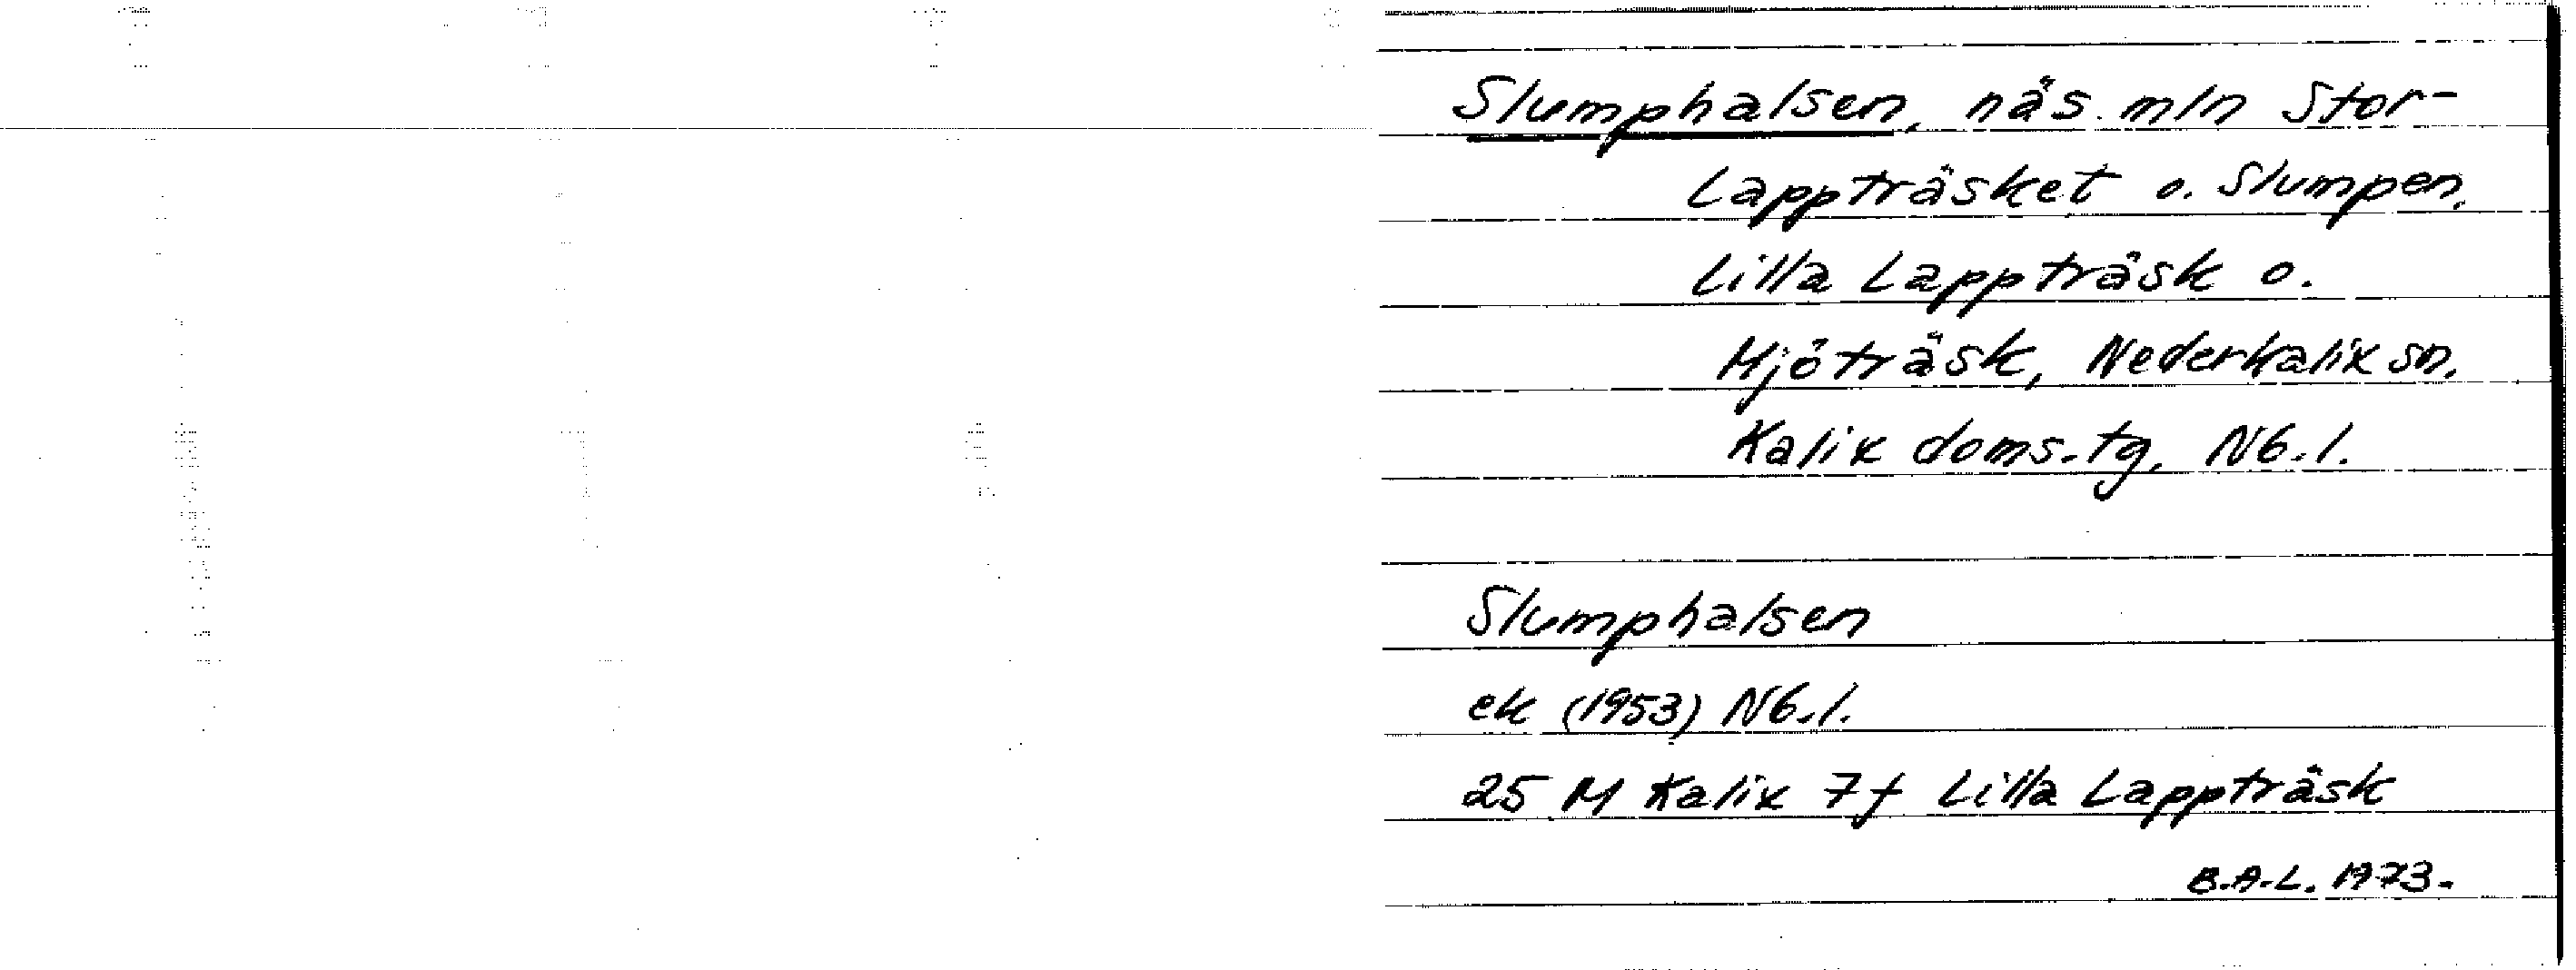 Slumphalsen, näs mln Stor-
Lappträsket o. Slumpen,
Lilla Lappträsk o.
Mjöträsk, Nederkalix sn,
Kalix doms.tg, Nb.l.
Slumphalsen
ek (1953) Nb.l.
25 M Kalix 7f Lilla Lappträsk
B.A.L. 1973.